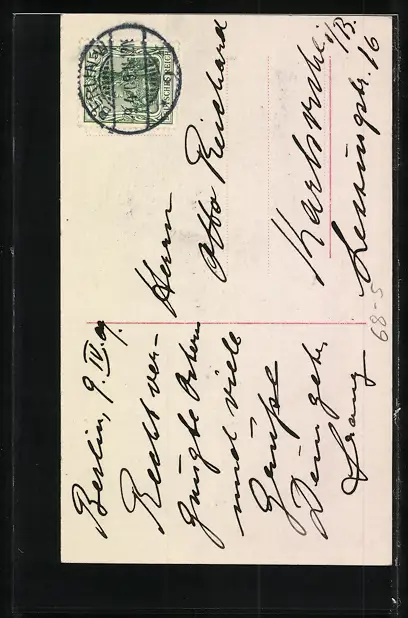 Berlin, 9. IV. 09.
Recht ver-
gnügte Ostern
und viele
Grüße
Dein getr.
Franz
Herrn
Otto Reichard
Karlsruhe i/B.
Lessingstr. 16
BERLIN
68-5